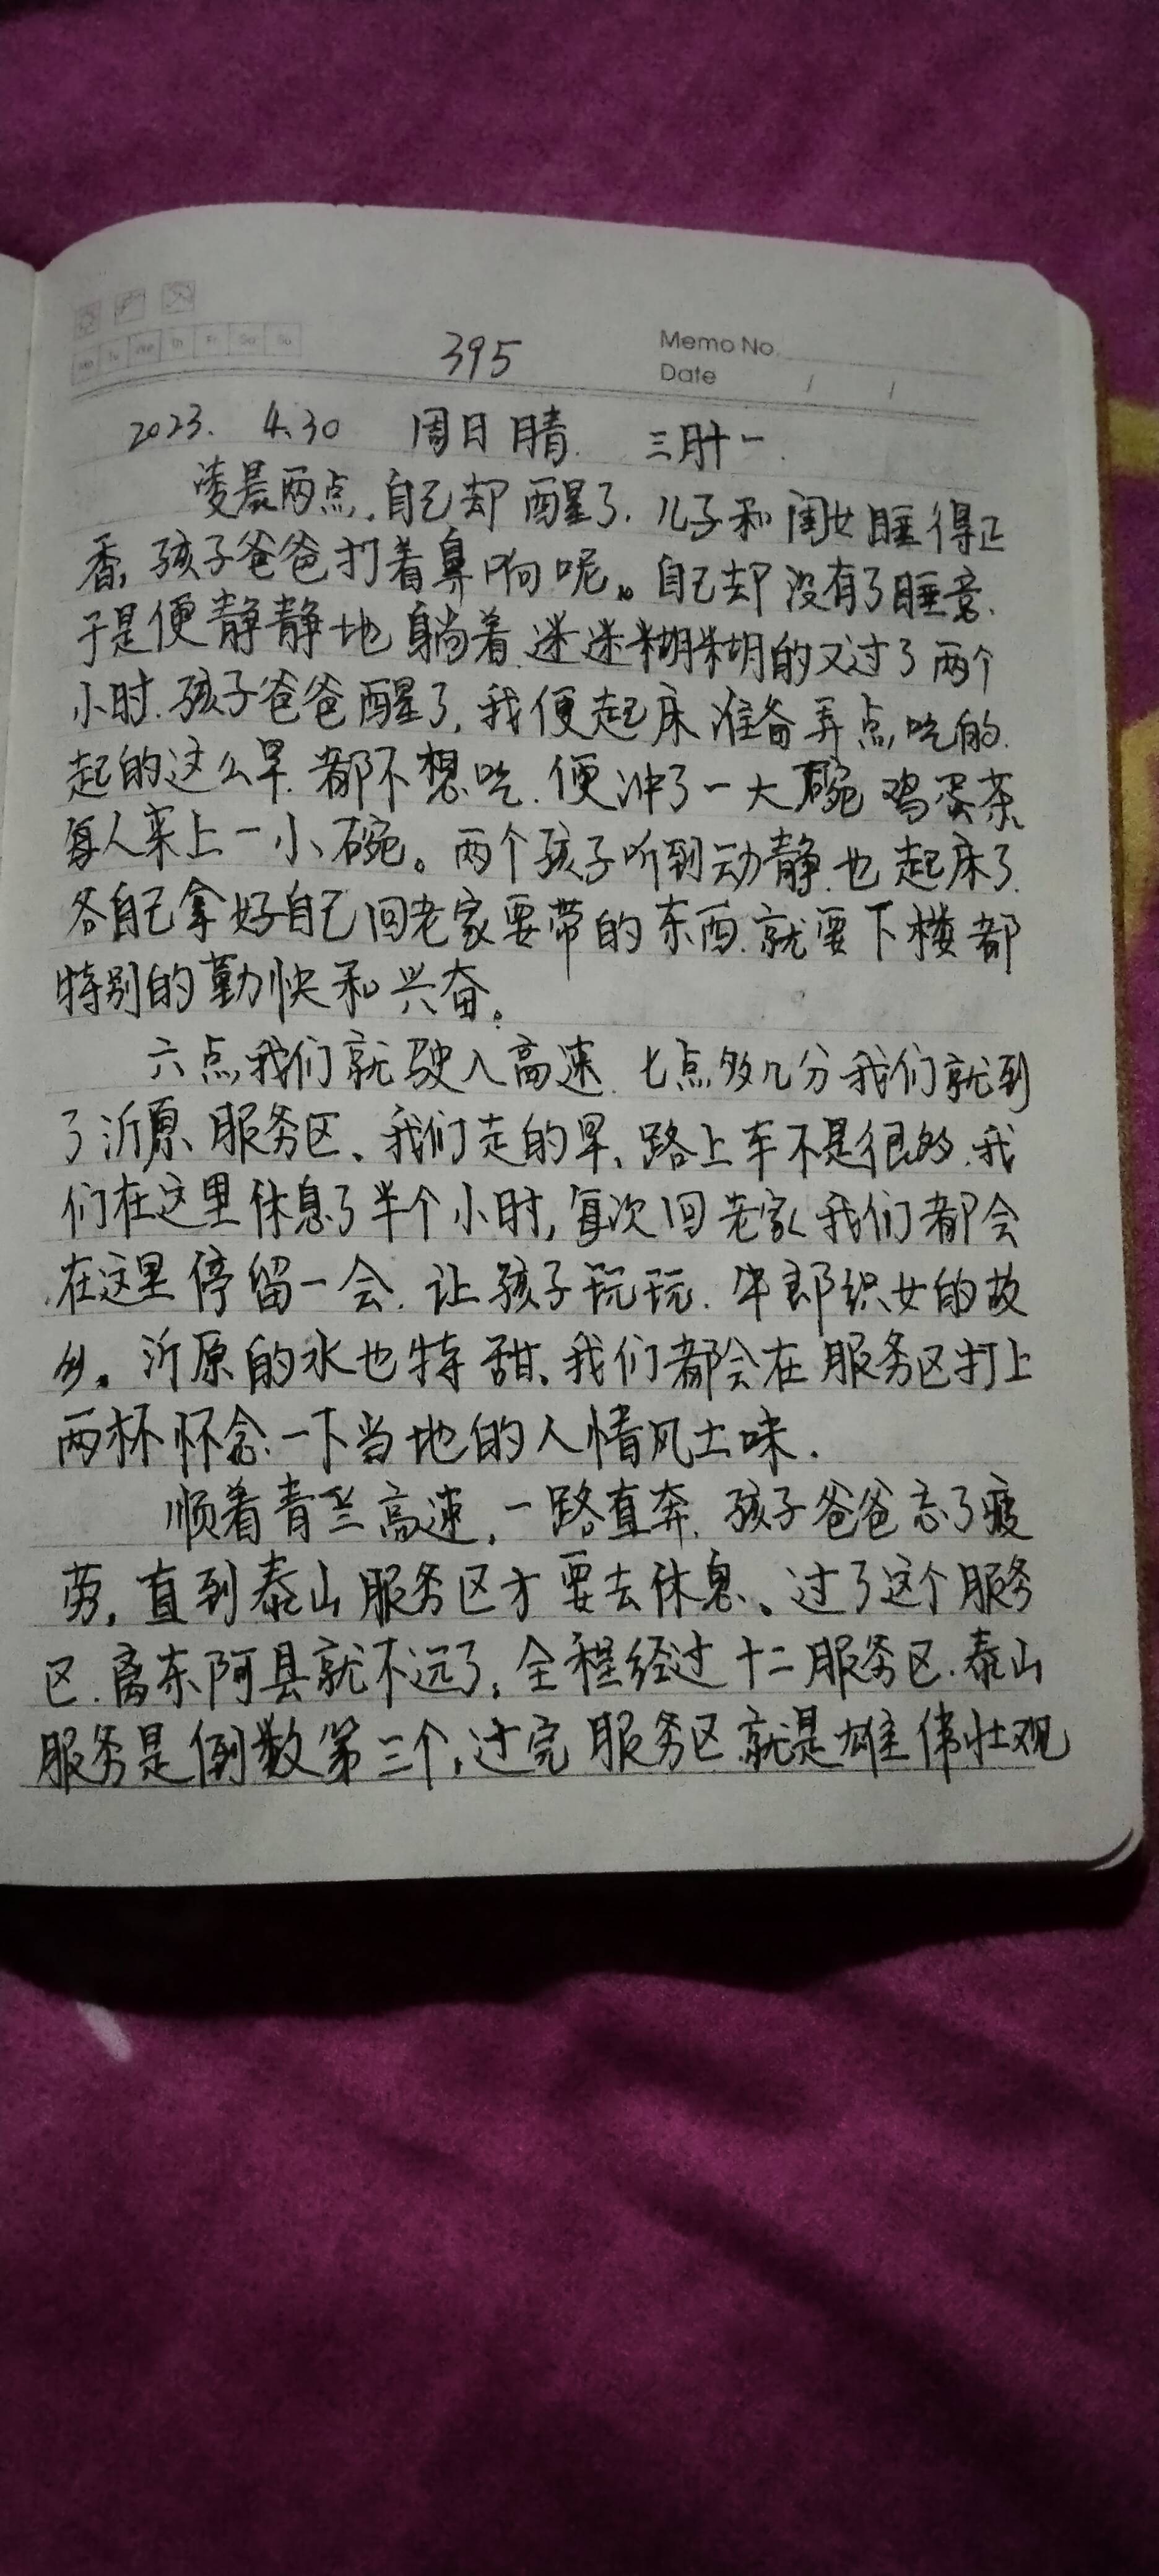 Mo Tu We Th Fr Sa Su
395
Memo No.
Date / /
2023. 4.30 周日 晴. 三月十一.
凌晨两点,自己却醒了.儿子和闺女睡得正
香,孩子爸爸打着鼻响呢。自己却没有了睡意.
于是便静静地躺着.迷迷糊糊的又过了两个
小时.孩子爸爸醒了,我便起床准备弄点吃的.
起的这么早.都不想吃.便冲了一大碗鸡蛋茶、
每人来上一小碗。两个孩子听到动静.也起床了.
各自己拿好自己回老家要带的东西.就要下楼都
特别的勤快和兴奋。
六点,我们就驶入高速.七点多几分我们就到
了沂原、服务区、我们走的早、路上车不是很多.我
们在这里休息了半个小时,每次回老家我们都会
在这里停留一会.让孩子玩玩.牛郎织女的故
乡。沂原的水也特甜、我们都会在服务区打上
两杯怀念一下当地的人情风土味.
顺着青兰高速,一路直奔.孩子爸爸忘了疲
劳,直到泰山服务区才要去休息、过了这个服务
区.离东阿县就不远了,全程经过十二服务区.泰山
服务是倒数第三个,过完服务区就是雄伟壮观